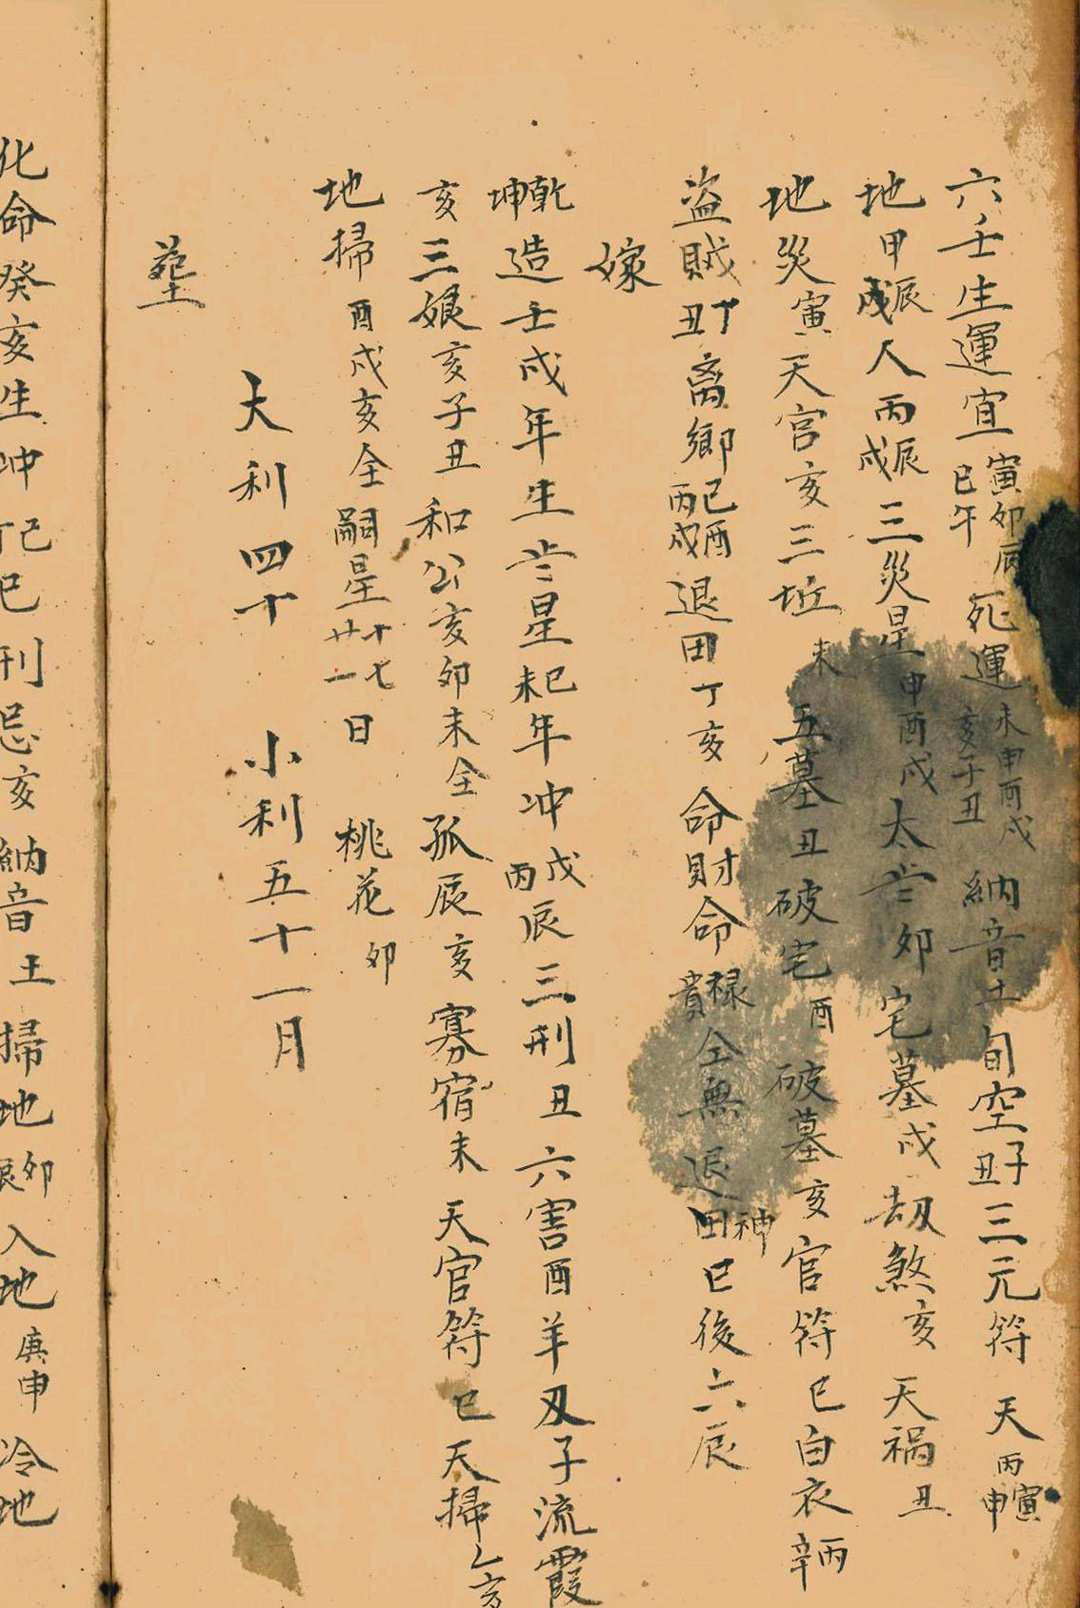 六壬生運宜寅卯辰巳午死運未申酉戌亥子丑納音土旬空子丑三元符天丙寅申
地甲辰戌人丙辰戌三災星申酉戌太岁卯宅墓戌劫煞亥天禍丑
地災寅天官亥三坵未五墓丑破宅酉破墓亥官符巳白衣丙辛
盜賊丁丑离鄉己酉丙戌退田丁亥命財命祿貴全無退神田巳後六辰
嫁
乾坤造壬戌年生岁星巳未年冲戊丙辰三刑丑六害酉羊刃子流霞
亥三娘亥子丑和公亥卯未全孤辰亥寡宿未天官符巳天掃乙亥
地掃酉戌亥全嗣星十七廿一日桃花卯
大利四十小利五十一月
塟
化命癸亥生冲己丁巳刑忌亥納音土掃地卯辰入地庚申冷地